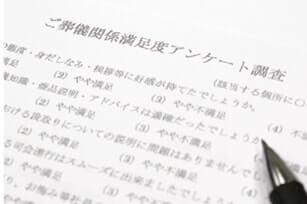 ご葬儀関係満足度アンケート調査
(該当する個所に○
態度・身だしなみ・挨拶等に好感が持てたでしょうか。
(2) やや満足 (3) やや不満足 (4)
知識・商品説明・アドバイスは適確だったでしょうか
(2) やや満足 (3) やや不満足 (4)
おける段取りについての説明に問題はありませんでし
(2) やや満足 (3) やや不満足
る司会進行はスムーズに出来ましたでしょう
(2) やや満足 (3) やや不満足